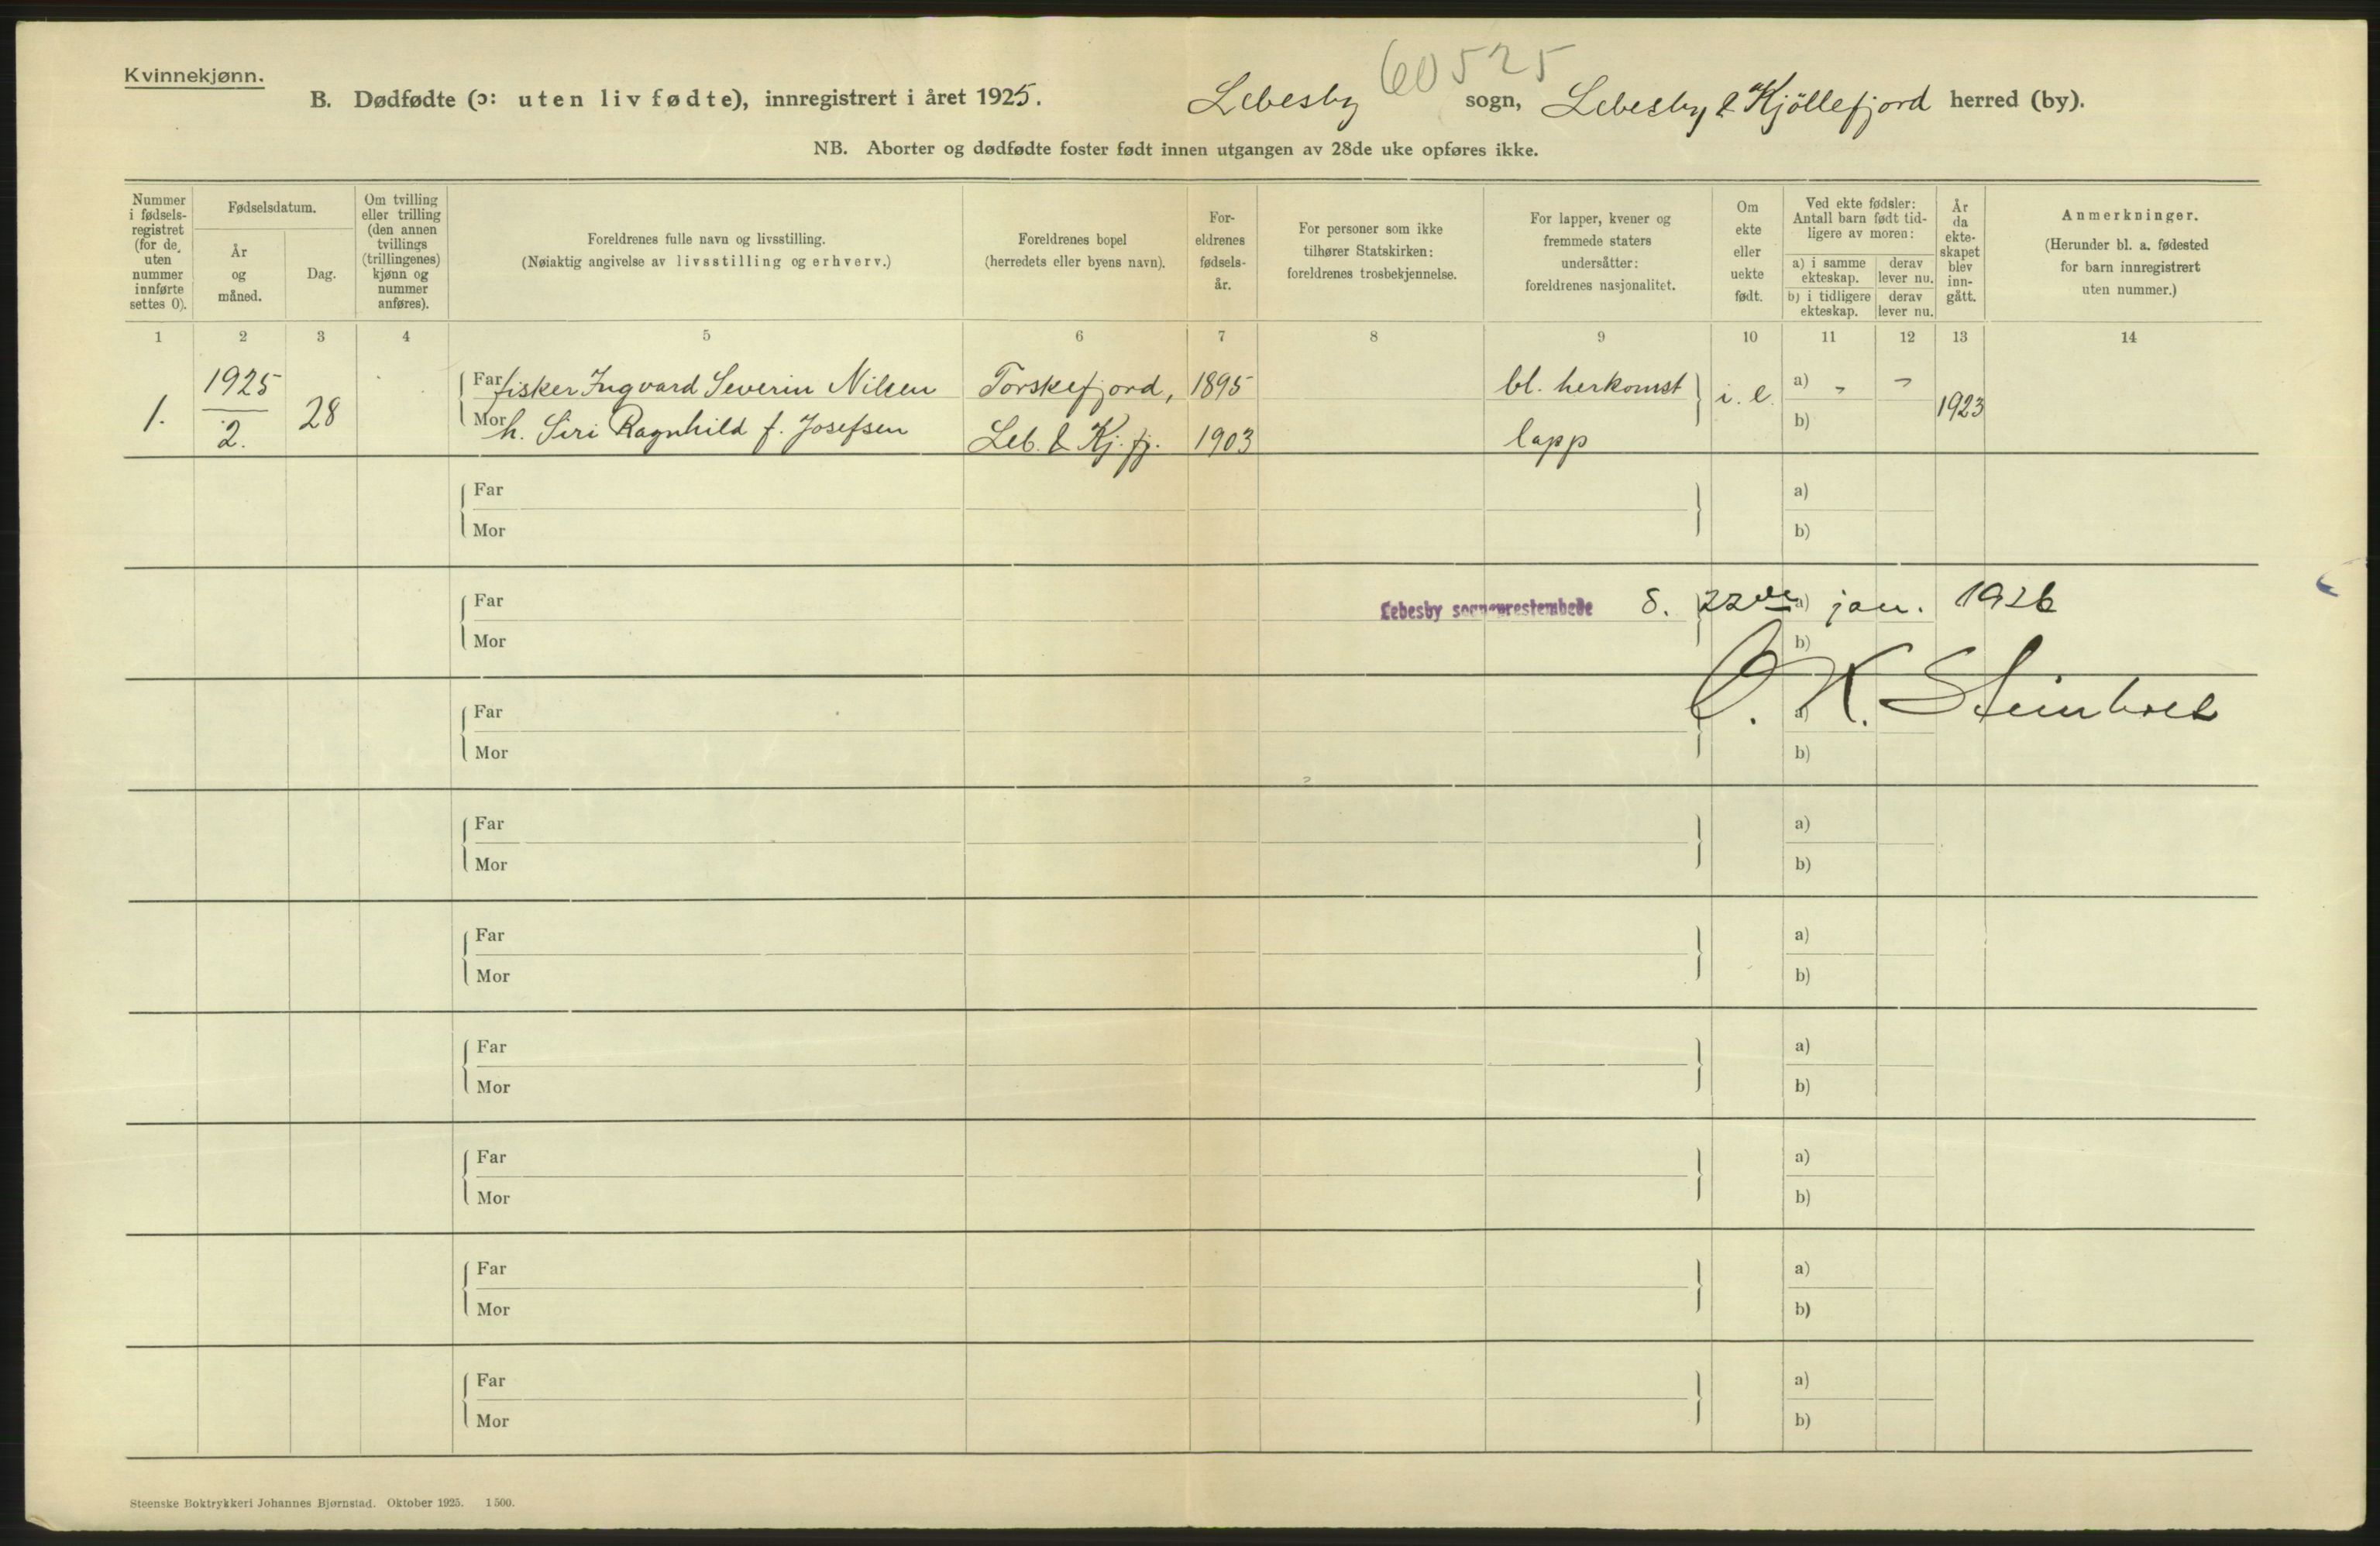 Kvinnekjønn.
60525
B. Dødfødte (ɔ: uten liv fødte), innregistrert i året 1925. Lebesby sogn, Lebesby & Kjöllefjord herred (by).
NB. Aborter og dødfødte foster født innen utgangen av 28de uke opføres ikke.
Nummer i fødselsregistret (for de uten nummer innførte settes 0).
Fødselsdatum.
År og måned.
Dag.
Om tvilling eller trilling (den annen tvillings (trillingenes) kjønn og nummer anføres).
Foreldrenes fulle navn og livsstilling.
(Nøiaktig angivelse av livsstilling og erhverv.)
Foreldrenes bopel
(herredets eller byens navn).
Foreldrenes fødselsår.
For personer som ikke tilhører Statskirken: foreldrenes trosbekjennelse.
For lapper, kvener og fremmede staters undersåtter: foreldrenes nasjonalitet.
Om ekte eller uekte født.
Ved ekte fødsler: Antall barn født tidligere av moren:
a) i samme ekteskap.
derav lever nu.
b) i tidligere ekteskap.
derav lever nu.
År da ekteskapet blev inngått.
Anmerkninger.
(Herunder bl. a. fødested for barn innregistrert uten nummer.)
1 2 3 4 5 6 7 8 9 10 11 12 13 14
1. 1925 2. 28
Far fisker Ingvard Severin Nilsen Torskefjord, 1895 bl. herkomst i. e. a) " " 1923
Mor h. Siri Ragnhild f. Josefsen Leb. & Kj. fj. 1903 lapp b)
Far a)
Mor b)
Far Lebesby sogneprestembede d. 22de a) jan. 1926
Mor b)
O. K. Steinholt
Far a)
Mor b)
Far a)
Mor b)
Far a)
Mor b)
Far a)
Mor b)
Far a)
Mor b)
Far a)
Mor b)
Far a)
Mor b)
Steenske Boktrykkeri Johannes Bjørnstad. Oktober 1925. 1500.